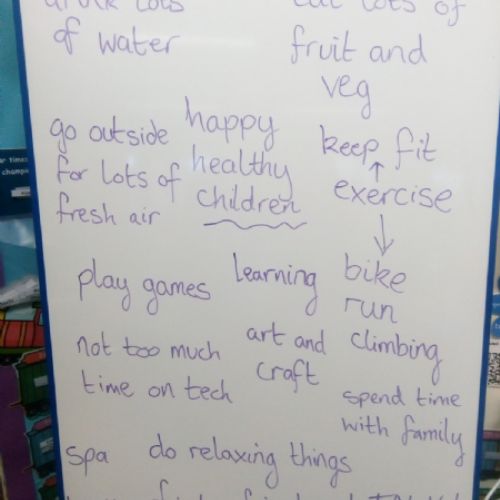 drink lots
of water
eat lots of
fruit and
veg
go outside
for lots of
fresh air
happy
healthy
children
keep fit
↑
exercise
↓
bike
run
climbing
play games
learning
art and
craft
not too much
time on tech
spend time
with family
spa
do relaxing things